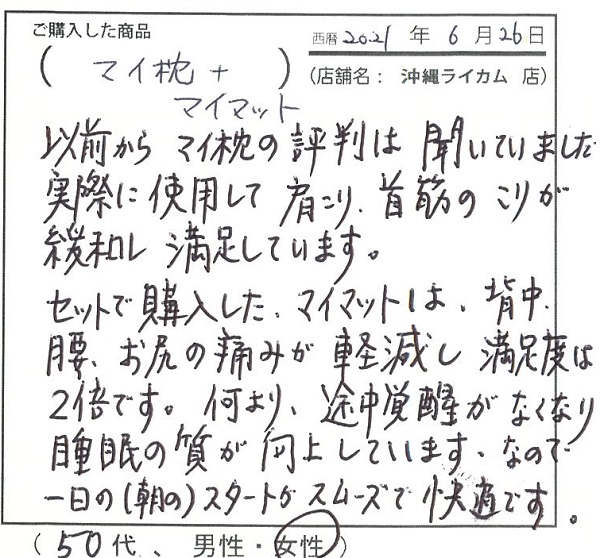 ご購入した商品
西暦 2021 年 6 月 26 日
( マイ枕 + マイマット )
(店舗名： 沖縄ライカム 店)
以前から マイ枕の 評判は 聞いていました
実際に 使用して 肩こり、首筋の こりが
緩和し 満足しています。
セットで購入した、マイマットは、背中、
腰、お尻の痛みが 軽減し 満足度は
2倍です。何より、途中覚醒が なくなり
睡眠の質が 向上しています、なので
一日の(朝の)スタートが スムーズで 快適です。
( 50 代、 男性・女性 )